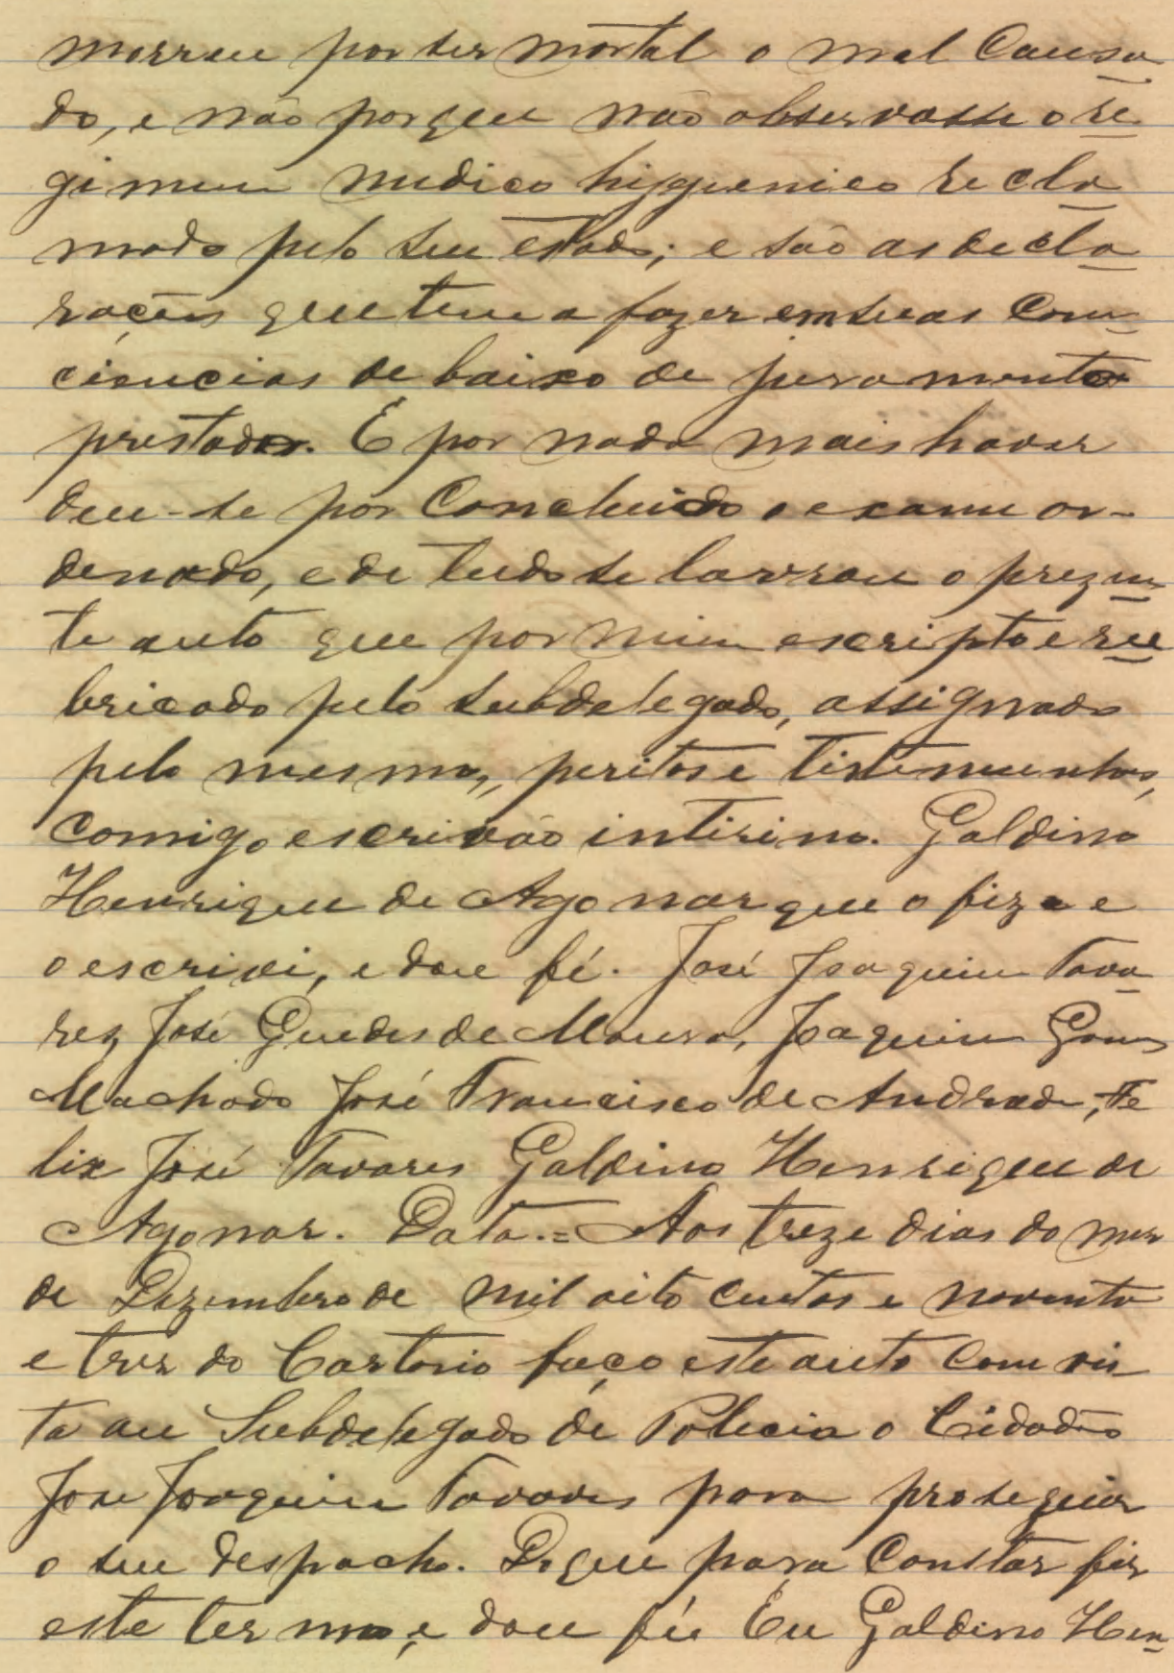 morreu por ser mortal o mal Causa
do, e não porque não observasse o re
gimen medico higuienico recla
mado pelo seu estado; e são as decla
rações que tem a fazer em suas Con
ciencias de baixo de juramento
prestado. E por nada mais haver
deu-se por Concluido o exame or-
denado, e de tudo se lavrou o prezen
te auto que por mim escripto e ru
bricado pelo Subdelegado, assignado
pelo mesmo, peritos e testemunhas,
comigo escrivão intirino. Galdino
Henrique de Agonar que o fiz e
o escrivi, e dou fé. José Joaquim Tava
rez José Guedes de Moura, Joaquim Gomes
Machado José Francisco de Andrade, Fe
lix José Tavares Galdino Henrique de
Agonar. Data.= Aos treze dias do mez
de Dezembro de mil oito centos e noventa
e trez do Cartorio faço este auto com vis
ta au Subdelegado de Policia o Cidadão
Jose Joaquim Tavares para proseguir
o seu despacho. Do que para Constar fiz
este termo, e dou fé Eu Galdino Hen